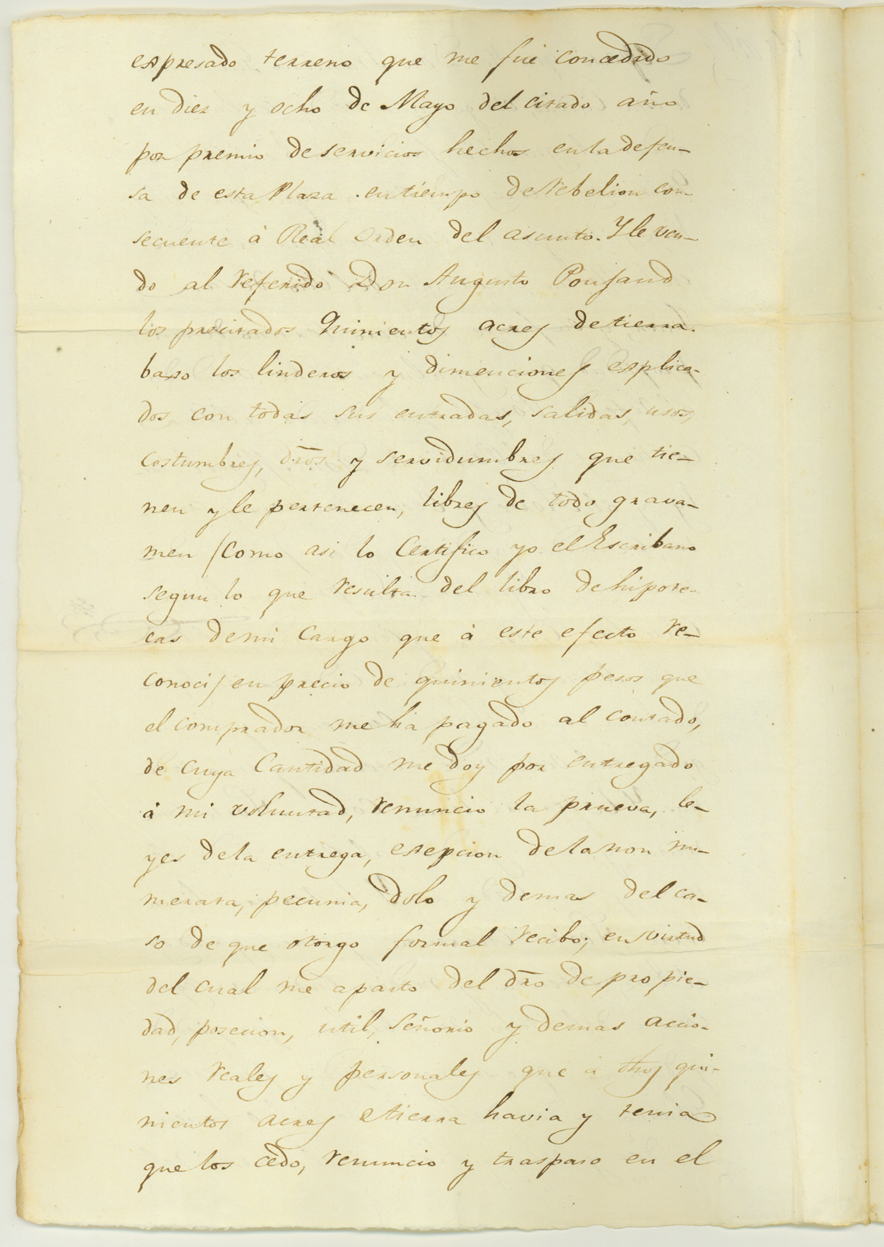 espresado terreno que me fué concedido
en diez y ocho de Mayo del citado año
por premio de servicios hechos en la defen-
sa de esta Plaza en tiempo de rebelion con-
secuente á Real orden del asunto. Y le ven-
do al referido Don Augusto Poujaud
los precitados quinientos acres de tierra
baxo los linderos y dimenciones esplica-
dos, con todas sus entradas, salidas, usos,
costumbres, dros y servidumbres que tie-
nen y le pertenecen, libres de todo grava-
men (como asi lo certifico yo el Escribano
segun lo que resulta del libro de hipote-
cas de mi cargo que á este efecto re-
conoci) en precio de quinientos pesos que
el comprador me ha pagado al contado,
de cuya cantidad me doy por entregado
á mi voluntad, renuncio la prueva, le-
yes de la entrega, esepcion de la non nu-
merata, pecunia, dolo y demas del ca-
so de que otorgo formal recibo; en virtud
del cual me aparto del dro de propie-
dad, posecion, util, señorio y demas accio-
nes reales y personales que á dhos qui-
nientos acres de tierra havia y tenia
que los cedo, renuncio y traspaso en el